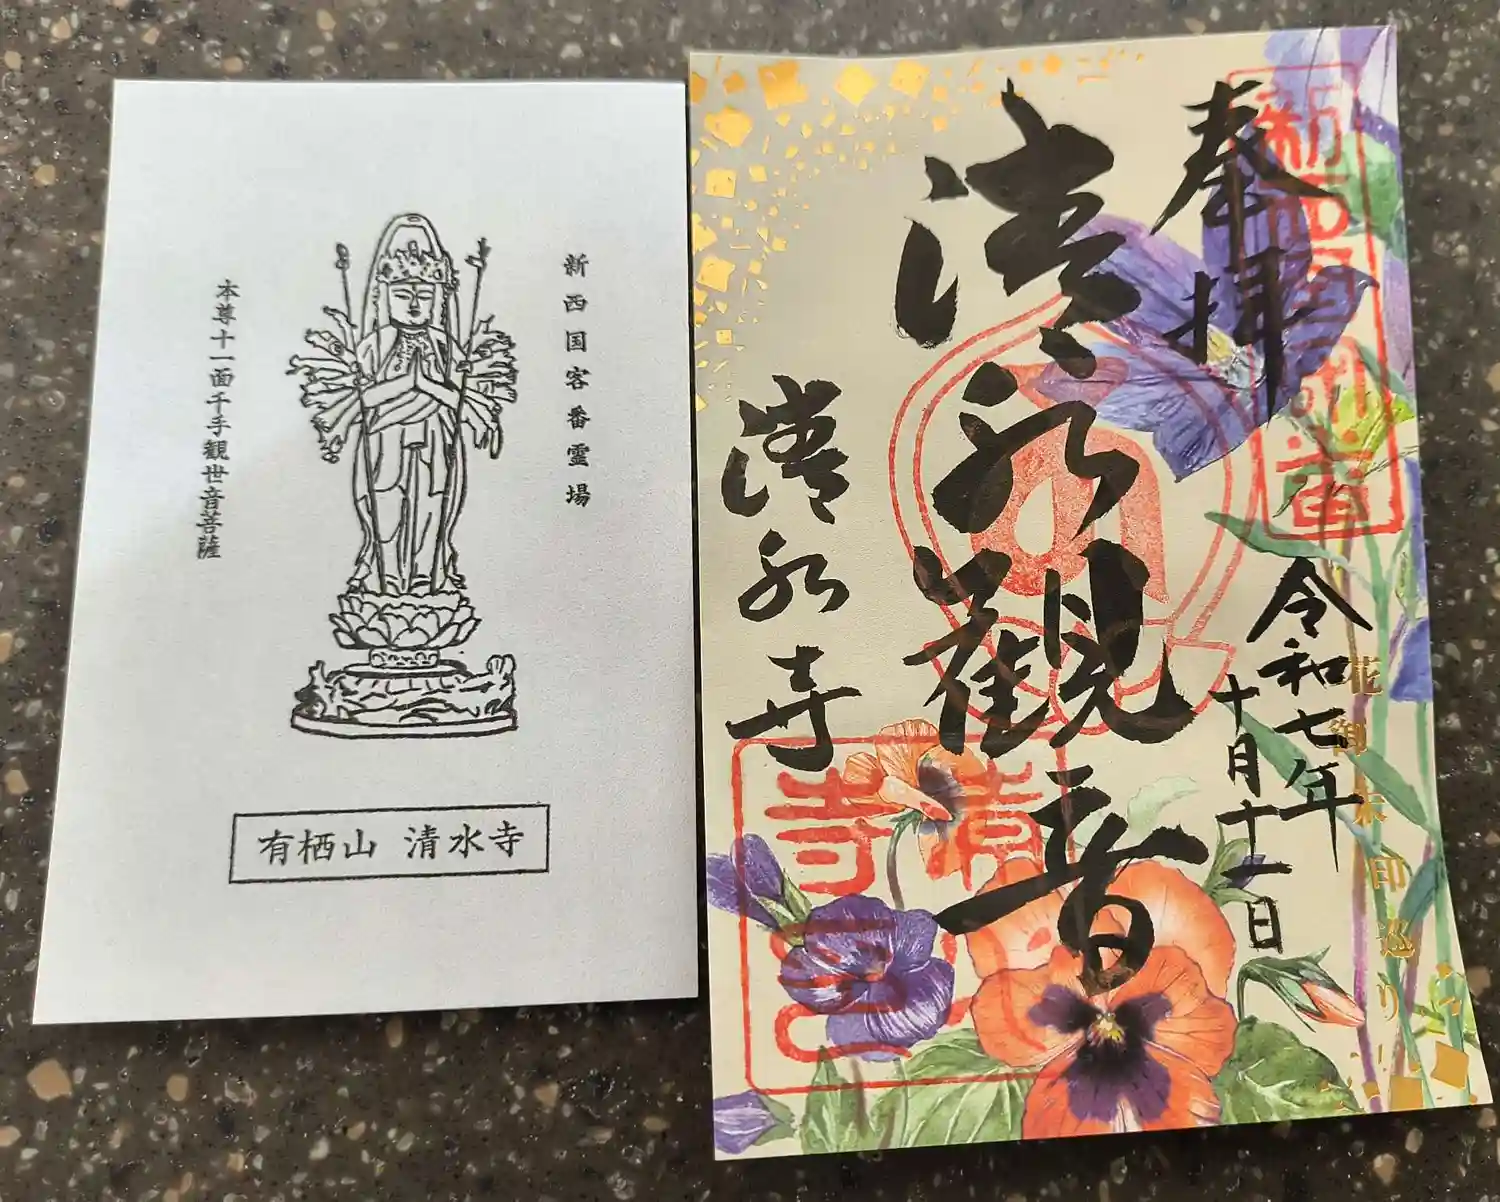 新西国客番霊場
本尊十一面千手観世音菩薩
有栖山 清水寺
奉拝
令和七年
十月十一日
清水観音
清水寺
花御朱印巡り